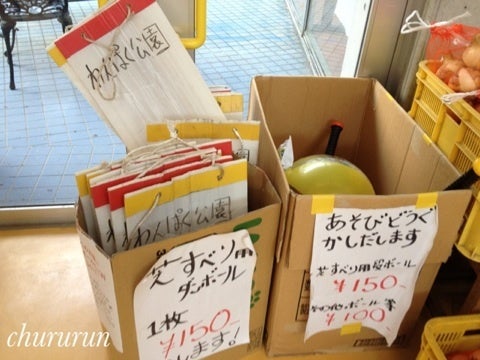 わんぱく公園
わんぱく公園
芝すべり用
ダンボール
1枚
¥150
します!
あそびどうぐ
かしだします
芝すべり用段ボール
¥150
その他・ボール 等
¥100
chururun